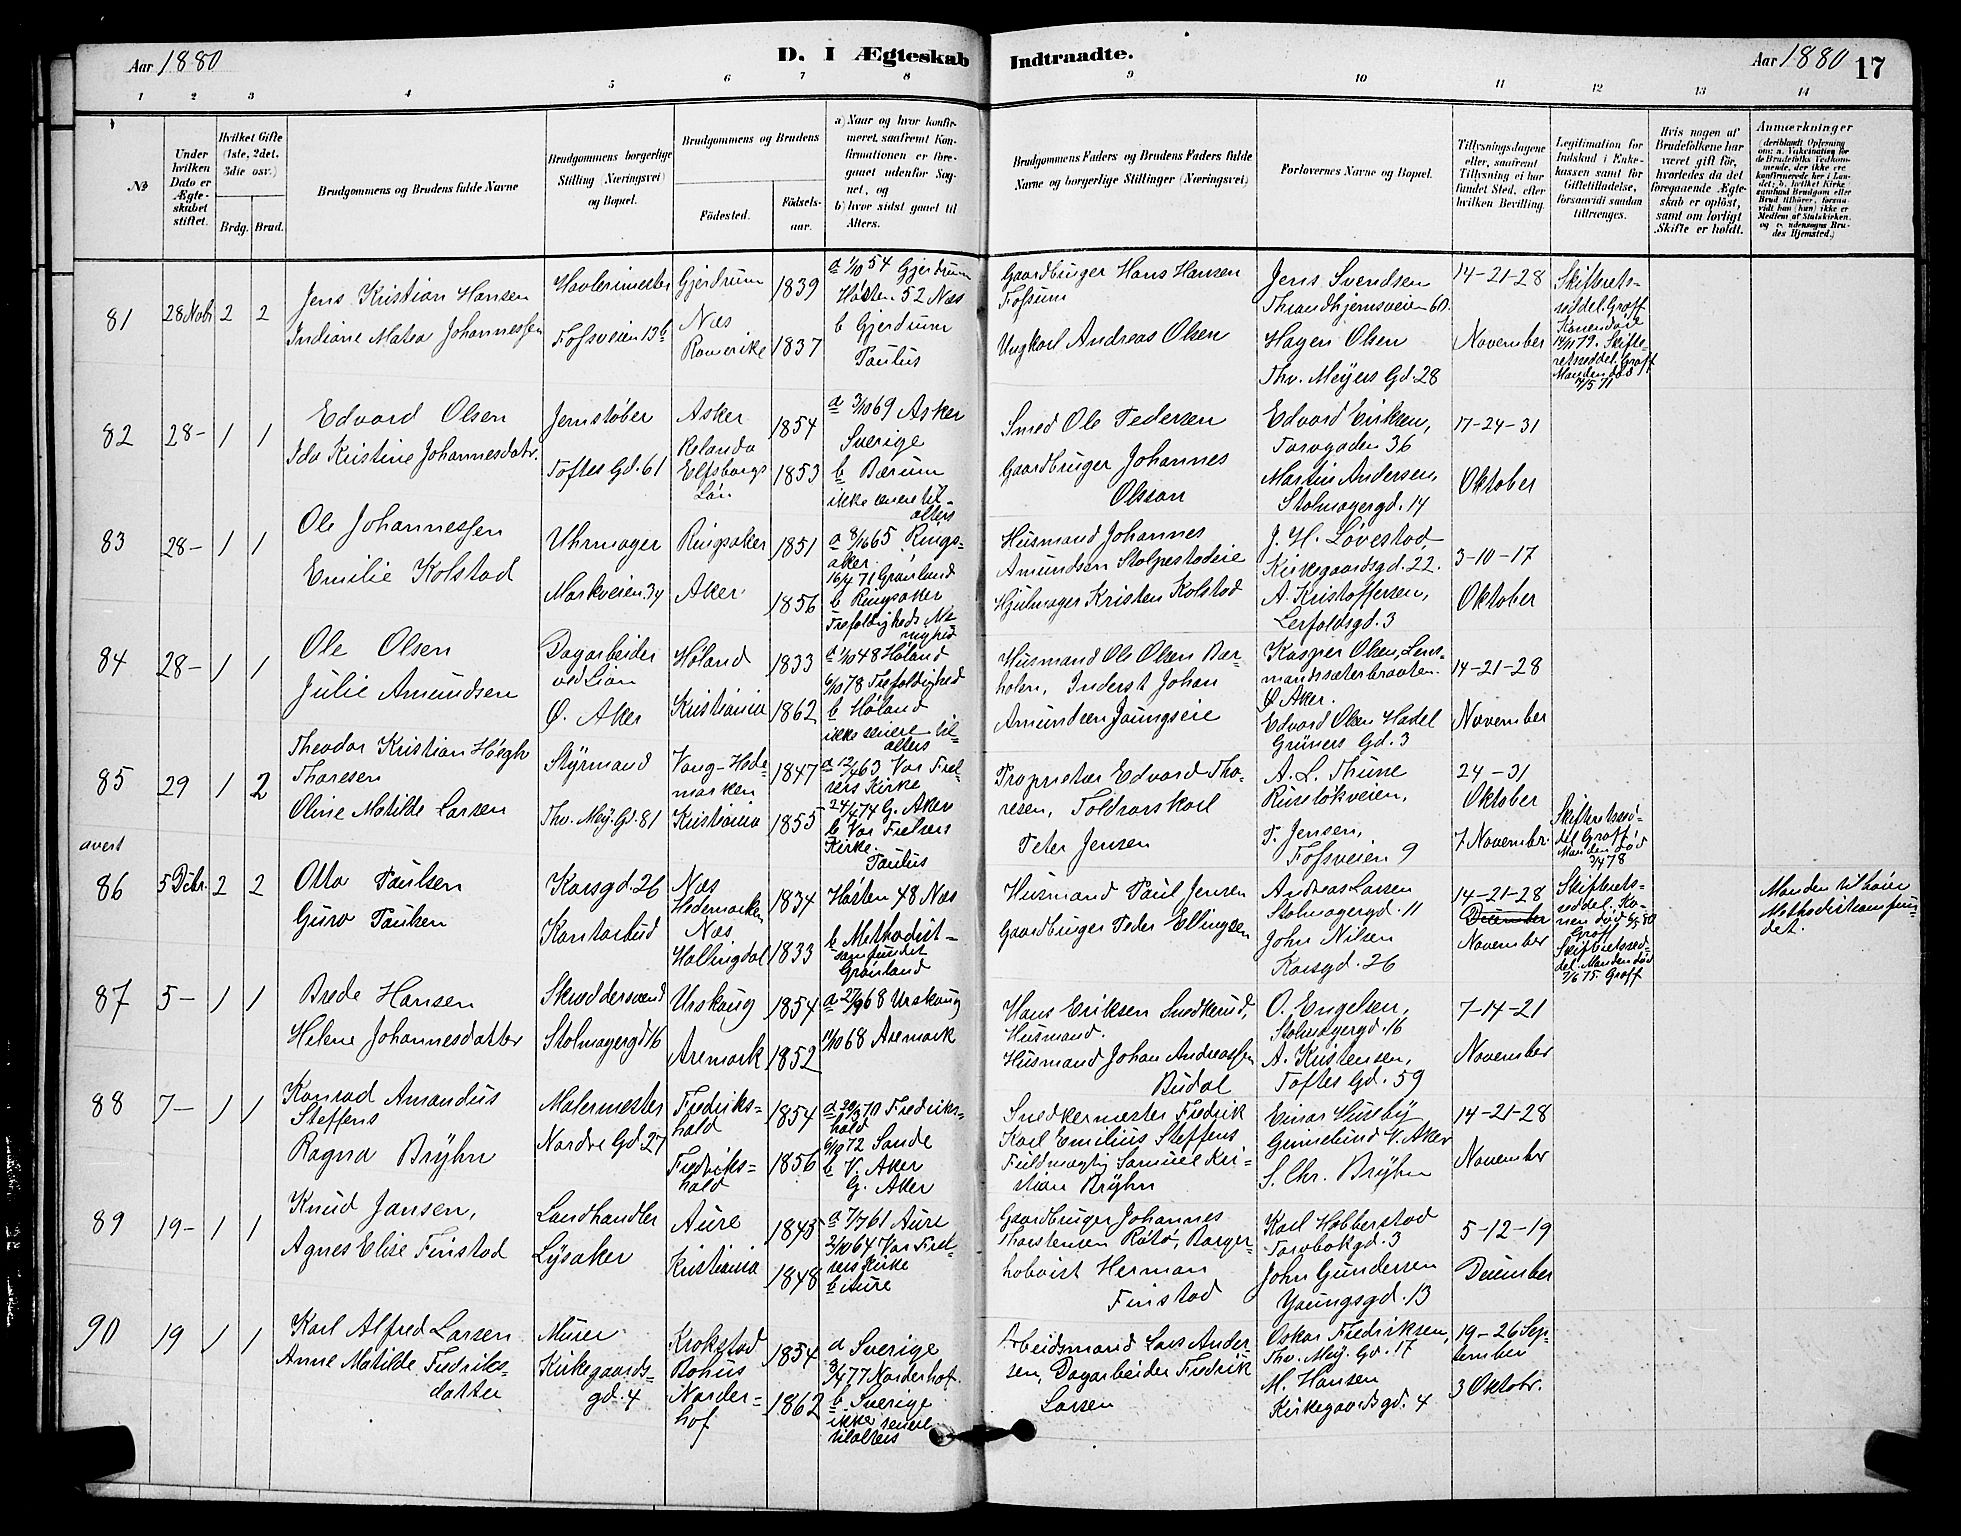 Aar 1880
D. I Ægteskab Indtraadte.
Aar 1880 17
1 2 3 4 5 6 7 8 9 10 11 12 13 14
№
Under hvilken Dato er Ægteskabet stiftet.
Hvilket Gifte (1ste, 2det, 3die osv.)
Brdg. Brud.
Brudgommens og Brudens fulde Navne
Brudgommens borgerlige Stilling (Næringsvei) og Bopæl.
Brudgommens og Brudens
Födested.
Födselsaar.
a) Naar og hvor konfirmeret, saafremt Konfirmationen er foregaaet udenfor Sognet, og
b) hvor sidst gaaet til Alters.
Brudgommens Faders og Brudens Faders fulde Navne og borgerlige Stillinger (Næringsvei)
Forlovernes Navne og Bopæl.
Tillysningsdagene eller, saafremt Tillysning ei har fundet Sted, efter hvilken Bevilling.
Legitimation for Indskud i Enkekassen samt for Giftetilladelse, forsaavidt saadan tiltrænges.
Hvis nogen af Brudefolkene har været gift för, hvorledes da det foregaaende Ægteskab er oplöst, samt om lovligt Skifte er holdt.
Anmærkninger
81
28 Novbr 2 2
Jens Kristian Hansen
Indiane Matea Johannessen
Fossveien 13b
Gjerdrum 1839
Næs Romerike 1837
a 1/10 54 Gjerdrum
Høsten 52 Næs
b Gjerdrum
Paulus
Gaardbruger Hans Hansen
Fossum
Ungkarl Andreas Olsen
Jens Svendsen
Throndhjemsveien 60.
Hagen Olsen
Thv. Meyers Gd. 28
14-21-28
November
Skifterets-
seddel. Graff
Konen død
14/11 79. Skifte-
retsseddel. Graff
Manden død
7/5 71
82
28- 1 1
Edvard Olsen
Ida Kristine Johannesdatr.
Jernstøber
Toftes Gd. 61
Asker 1854
Elfsborgs Län 1853
a 3/10 69 Asker
Sverige
b Bærum
ikke senere til-
alters
Smed Ole Pedersen
Gaardbruger Johannes
Olsson
Edvard Eriksen,
Torvgaden 36
Martin Andersen,
Stolmagergd. 14
17-24-31
Oktober
83
28- 1 1
Ole Johannessen
Emilie Kolstad
Uhrmager
Markveien 34
Ringsaker 1851
Aker 1856
a 8/10 65 Rings-
aker
16/4 71 Grønland
b Ringsaker
Trefoldigheds Me-
nighed
Husmand Johannes
Amundsen Stolpestadeie
Hjulmager Kristen Kolstad
J. H. Løvestad
Kirkegaardsgd. 22.
A. Kristoffersen,
Lerfoldsgd. 3
3-10-17
Oktober
84
28- 1 1
Ole Olsen
Julie Amundsen
Dagarbeider
ved Lian
Ø. Aker
Høland 1833
Kristiania 1862
a 1/10 48 Høland
6/10 78 Trefoldighed
b Høland
ikke senere til-
alters
Husmand Ole Olsen Bær-
holm, Inderst Johan
Amundsen Jaungseie
Kasper Olsen, Lens-
mandssæterbraaten
Ø Aker.
Edvard Olsen Hadel
Grüners Gd. 3
14-21-28
November
85
29 1 2
Theodor Kristian Høegh
Thoresen
Oline Matilde Larsen
Styrmand
Thv. Mey. Gd. 81
Vang-Hede-
marken 1847
Kristiania 1855
a 12/4 63 Vor Frel-
sers Kirke
24/4 74 G. Aker
b Vor Frelsers
Kirke.
Paulus
Proprietær Edvard Tho-
resen, Toldvarskarl
Peter Jensen
A. L. Thune
Ruseløkveien,
P. Jensen,
Fossveien 9
24-31
Oktober
7 November
Skifteretssed-
del Graff
Manden død
3/4 78
86
5 Debr. 2 2
Otto Paulsen
Guro Paulsen
Korsgd. 26
Kontorbud
Næs
Hedemarken 1834
Næs
Hallingdal 1833
Høsten 48 Næs
b Methodist-
samfundet
Grønland
Husmand Paul Jensen
Gaardbruger Peder Ellingsen
Andreas Larsen
Stolmagergd. 11
John Nilsen
Korsgd. 26
14-21-28
December
November
Skifterets-
seddel. Ko-
nen død 6/5 80
Graff
Skifteretssed-
del. Manden død
7/6 75 Graff
Manden tilhører
Methodistsamfun-
det.
87
5- 1 1
Brede Hansen
Helene Johannesdatter
Skræddersvend
Stolmagergd 16
Urskoug 1854
Aremark 1852
a 27/9 68 Urskoug
11/10 68 Aremark
Hans Eriksen Snedkerud,
Husmand.
Husmand Johan Andreassen
Budal
O. Engelsen,
Stolmagergd. 16
A. Kristensen,
Toftes Gd. 59
7-14-21
November
88
7- 1 1
Konrad Amandus
Steffens
Ragna Bryhn
Malermester
Nordre Gd. 27
Fredriks-
hald 1854
Fredriks-
hald 1856
70 Fredriks-
hald
6/10 72 Sande
b V. Aker
G. Aker
Snedkermester Fredrik
Karl Emilius Steffens
Fuldmægtig Samuel Kri-
stian Bryhn
Einar Huseby
V. Aker
S. Chr. Bryhn
14-21-28
November
89
19- 1 1
Knud Jansen,
Agnes Elise Finstad
Landhandler
Lysaker
Aure 1845
Kristiania 1848
a 7/7 61 Aure
2/10 64 Vor Frel-
sers Kirke
b Aure
Gaardbruger Johannes
Thorstensen Rotø, Borger-
hobvist Herman
Finstad
Karl Hobberstad
Torvbakgd. 3
John Gundersen
Youngsgd. 13
5-12-19
December
90
19 1 1
Karl Alfred Larsen
Anne Matilde Fredriks-
datter
Murer
Kirkegaards-
gd. 4
Krokstad
Bohus 1854
Norder-
hof 1862
a Sverige
77 Norderhof.
b Sverige
ikke senere
tilalters
Arbeidsmand Lars Ander-
sen, Dagarbeider Fredrik
Larsen
Oskar Fredriksen,
Thv. Mey. Gd. 17
M. Hansen
Kirkegaardsgd. 4
19-26 Sep-
tember
3 Oktobr.